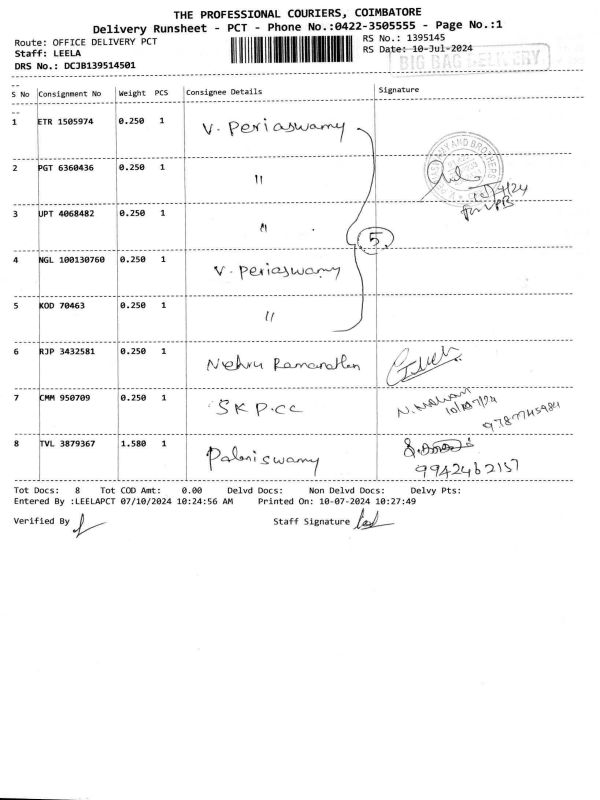 THE PROFESSIONAL COURIERS, COIMBATORE
Delivery Runsheet - PCT - Phone No.:0422-3505555 - Page No.:1
Route: OFFICE DELIVERY PCT
RS No.: 1395145
Staff: LEELA
RS Date: 10-Jul-2024
DRS No.: DCJB139514501
BIG BAG DELIVERY
S No Consignment No Weight PCS Consignee Details Signature
1 ETR 1505974 0.250 1 V. Periaswamy
2 PGT 6360436 0.250 1 "
3 UPT 4068482 0.250 1 "
5.
4 NGL 100130760 0.250 1 V. Periaswamy
5 KOD 70463 0.250 1 "
6 RJP 3432581 0.250 1 Nehru Ramanathan
7 CMM 950709 0.250 1 SKP.CC
9787745984
8 TVL 3879367 1.580 1 Palaniswamy
9942462157
Tot Docs: 8 Tot COD Amt: 0.00 Delvd Docs: Non Delvd Docs: Delvy Pts:
Entered By :LEELAPCT 07/10/2024 10:24:56 AM Printed On: 10-07-2024 10:27:49
Verified By
Staff Signature